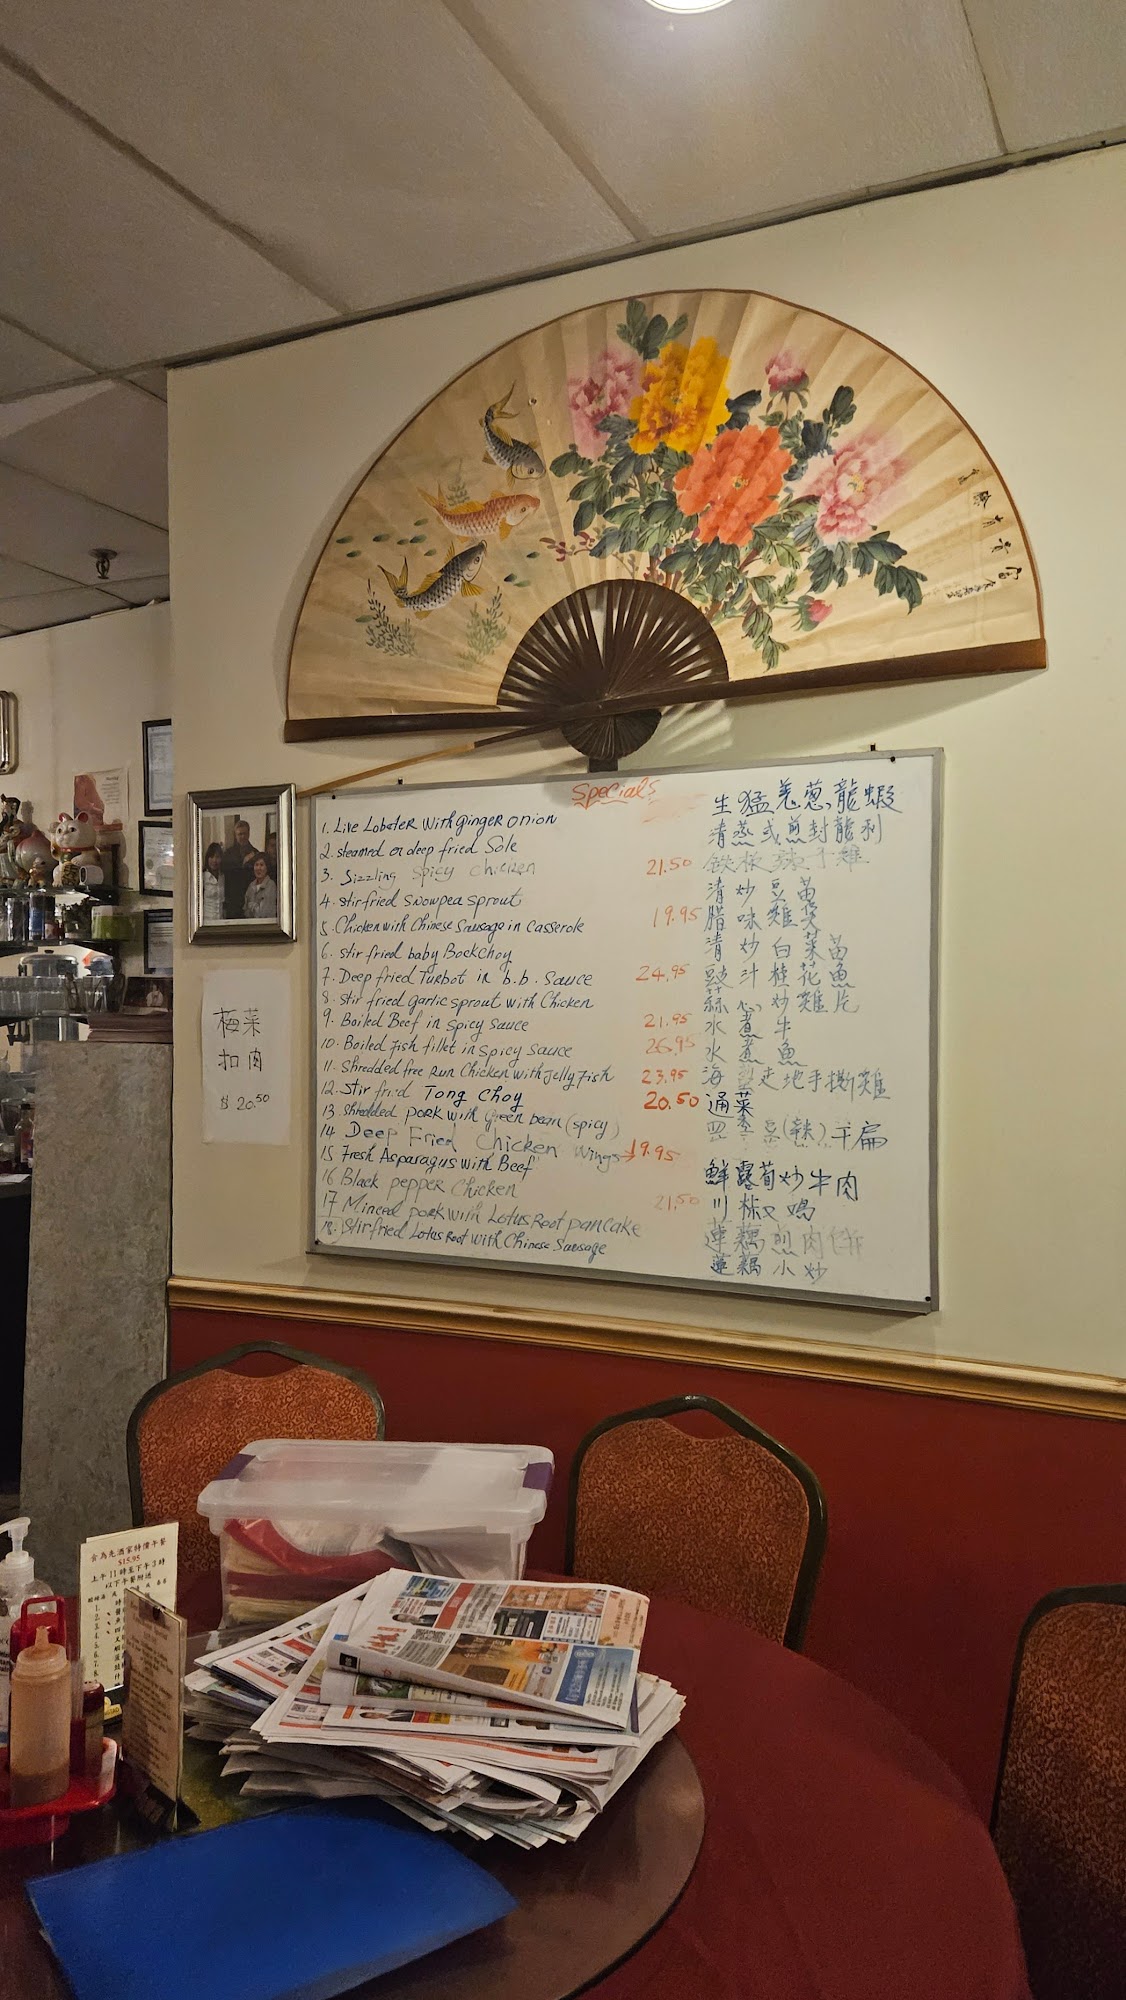 Specials
1. Live Lobster with ginger onion 生猛羌蔥龍蝦
2. steamed or deep fried Sole 清蒸或煎封龍利
3. Sizzling Spicy Chicken 21.50 鉄板辣子雞
4. stirfried snowpea sprout 清炒豆苗
5. Chicken with Chinese Sausage in casserole 19.95 腊味雞煲
6. stir fried baby Bockchoy 清炒白菜苗
7. Deep fried Turbot in b.b. Sauce 24.95 豉汁桂花魚
8. stir fried garlic sprout with Chicken 絲心炒雞片
9. Boiled Beef in spicy sauce 21.95 水煮牛
10. Boiled Fish fillet in spicy Sauce 26.95 水煮魚
11. Shredded free Run Chicken with Jelly Fish 23.95 海蜇走地手撕雞
12. Stir fried Tong Choy 20.50 通菜
13. shredded pork with Green bean (spicy) 干扁
14 Deep Fried Chicken Wings 19.95
15 Fresh Asparagus with Beef 鮮露荀炒牛肉
16 Black pepper Chicken 21.50
17 Minced pork with Lotus Root pancake 蓮藕煎肉餅
18. Stirfried Lotus Root with Chinese Sausage 蓮藕小炒
梅菜
扣肉
$ 20.50
食為先酒家特價午餐
$15.95
上午11時至下午3時
以下午餐附送